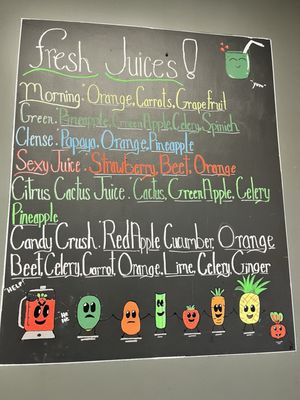 fresh Juices!
yum
Morning: Orange, Carrots, Grapefruit
Green: Pineapple, Green Apple, Celery, Spinich
Clense: Papaya, Orange, Pineapple
Sexy Juice: Strawberry, Beet, Orange
Citrus Cactus Juice: Cactus, Green Apple, Celery
Pineapple
Candy Crush: Red Apple Cucumber, Orange
Beet, Celery, Carrot Orange, Lime, Celery, Ginger
HELP!